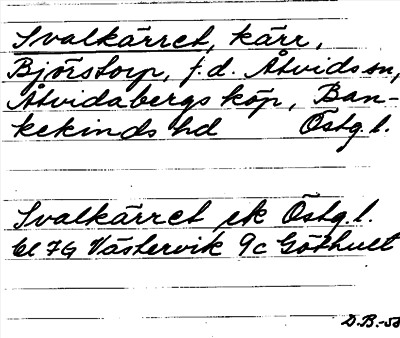 Svalkärret, kärr,
Björstorp, f.d. Åtvids sn,
Åtvidabergs köp, Ban-
kekinds hd Östg.l.
Svalkärret ek Östg.l.
bl 7G Västervik 9c Göthult
D.B.-58